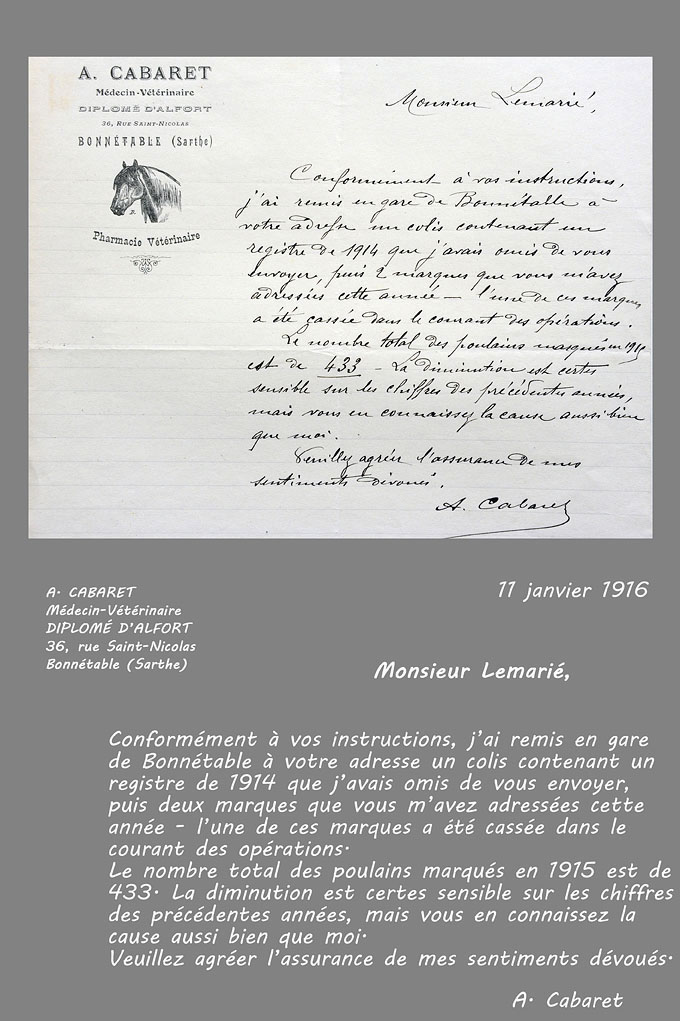 A. CABARET
Médecin-Vétérinaire
DIPLOMÉ D'ALFORT
36, RUE SAINT-NICOLAS
BONNÉTABLE (Sarthe)
Pharmacie Vétérinaire
Monsieur Lemarié,
Conformément à vos instructions,
j'ai remis en gare de Bonnétable à
votre adresse un colis contenant un
registre de 1914 que j'avais omis de vous
envoyer, puis 2 marques que vous m'avez
adressées cette année — l'une de ces marques
a été cassée dans le courant des opérations.
Le nombre total des poulains marqués en 1915
est de 433 - La diminution est certes
sensible sur les chiffres des précédentes années,
mais vous en connaissez la cause aussi bien
que moi.
Veuillez agréer l'assurance de mes
sentiments dévoués.
A. Cabaret
A. CABARET
Médecin-Vétérinaire
DIPLOMÉ D'ALFORT
36, rue Saint-Nicolas
Bonnétable (Sarthe)
11 janvier 1916
Monsieur Lemarié,
Conformément à vos instructions, j'ai remis en gare
de Bonnétable à votre adresse un colis contenant un
registre de 1914 que j'avais omis de vous envoyer,
puis deux marques que vous m'avez adressées cette
année - l'une de ces marques a été cassée dans le
courant des opérations.
Le nombre total des poulains marqués en 1915 est de
433. La diminution est certes sensible sur les chiffres
des précédentes années, mais vous en connaissez la
cause aussi bien que moi.
Veuillez agréer l'assurance de mes sentiments dévoués.
A. Cabaret